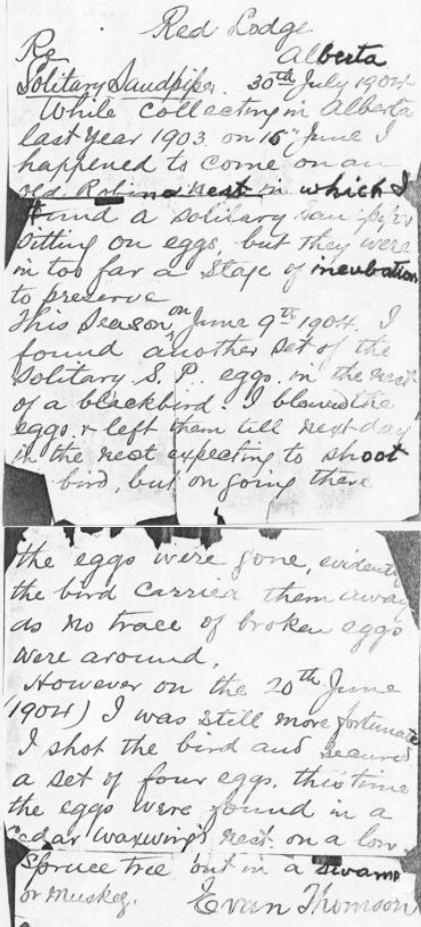 Red Lodge
Re Alberta
Solitary Sandpiper. 30th July 1904
While collecting in Alberta
last year 1903. on 16th June I
happened to come on an
old Robins nest in which I
found a solitary Sandpiper
sitting on eggs, but they were
in too far a stage of incubation
to preserve
This Season, on June 9th 1904. I
found another set of the
Solitary S. P. eggs. in the nest
of a blackbird. I blowed the
eggs & left them till next day
in the nest expecting to shoot
bird, but on going there
the eggs were gone, evidently
the bird carried them away
as no trace of broken eggs
were around.
However on the 20th June
1904) I was still more fortunate
I shot the bird and secured
a set of four eggs. this time
the eggs were found in a
cedar waxwing's nest. on a low
Spruce tree out in a swamp
or Muskeg. Evan Thomson